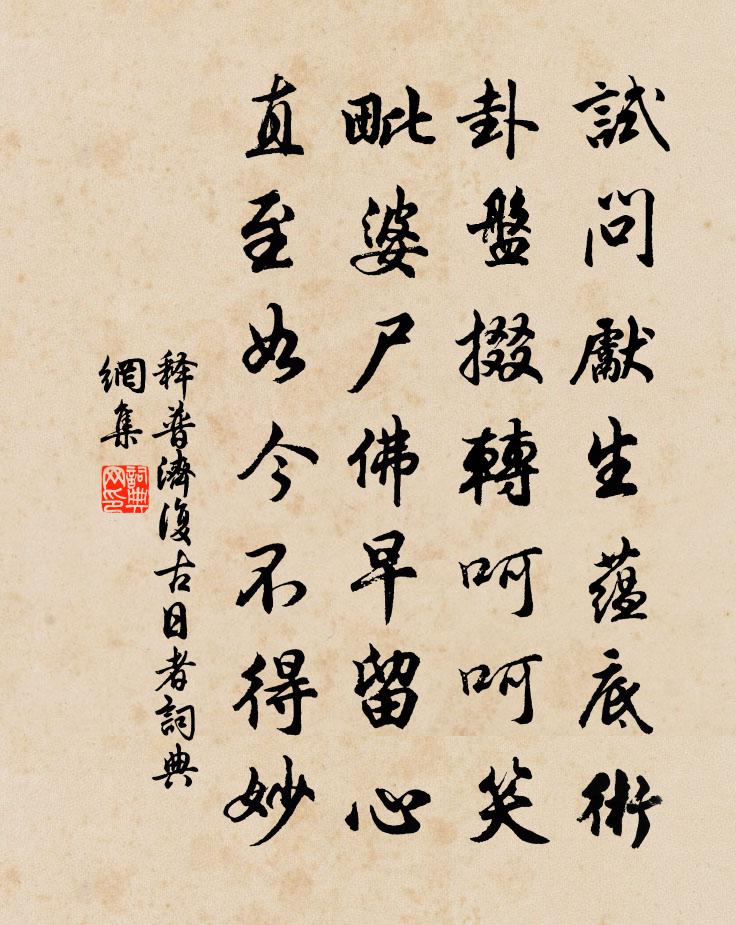 試問獻生蘊底術
卦盤掇轉呵呵笑
毗婆尸佛早留心
直至如今不得妙
释普濟復古日者詞典
網集
詞典
网印